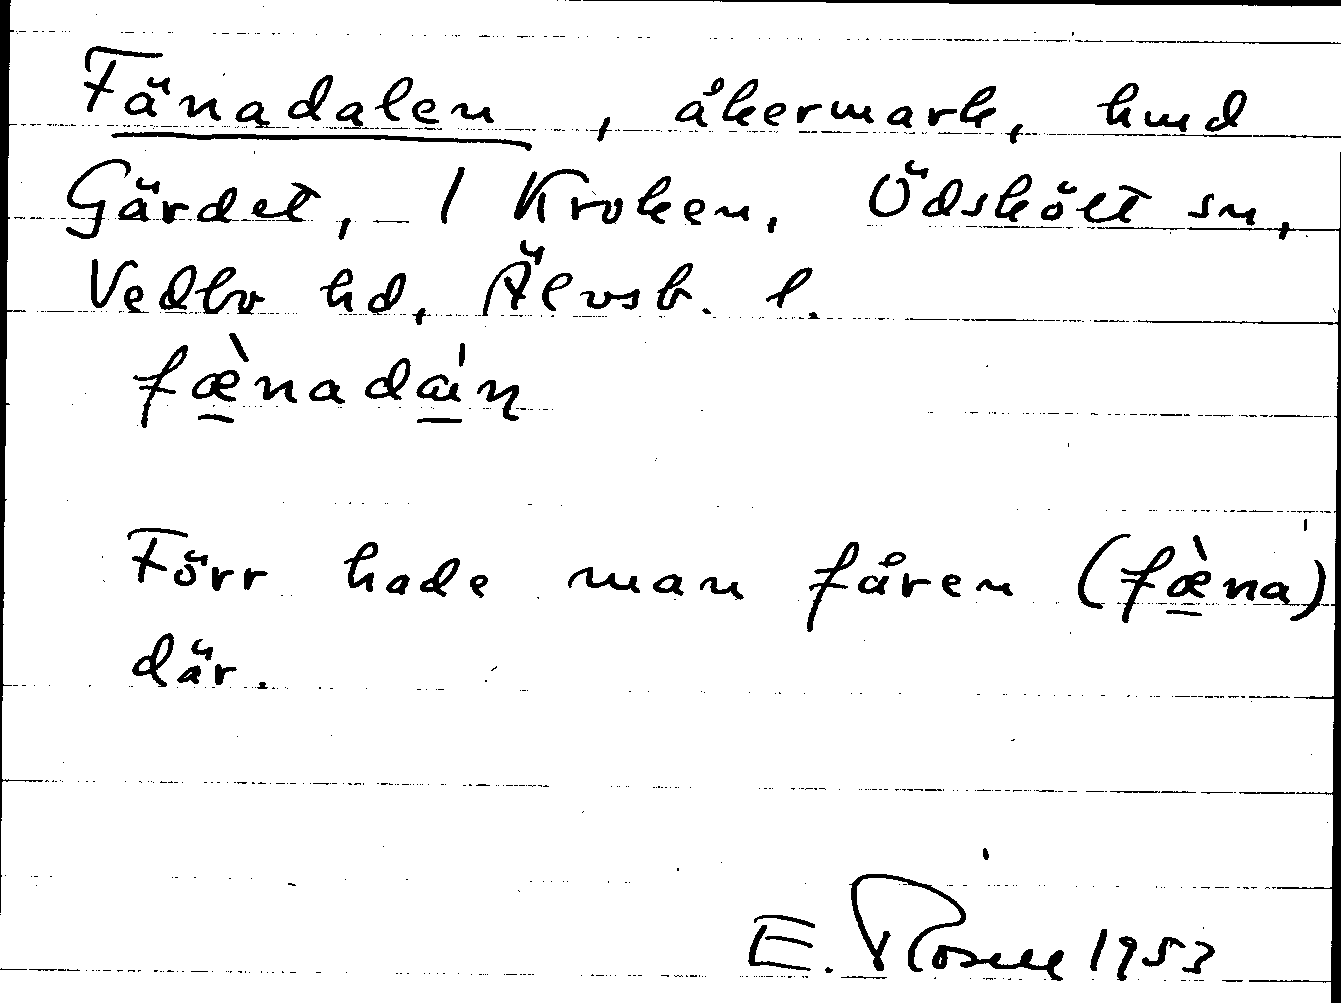 Fänadalen, åkermark, hmd
Gärdet, 1 Kroken, Ödskölt sn,
Vedbo hd, Älvsb. l.
fæ̀nada̍n
Förr hade man fåren (fæ̀na)
där.
E. Rosell 1953